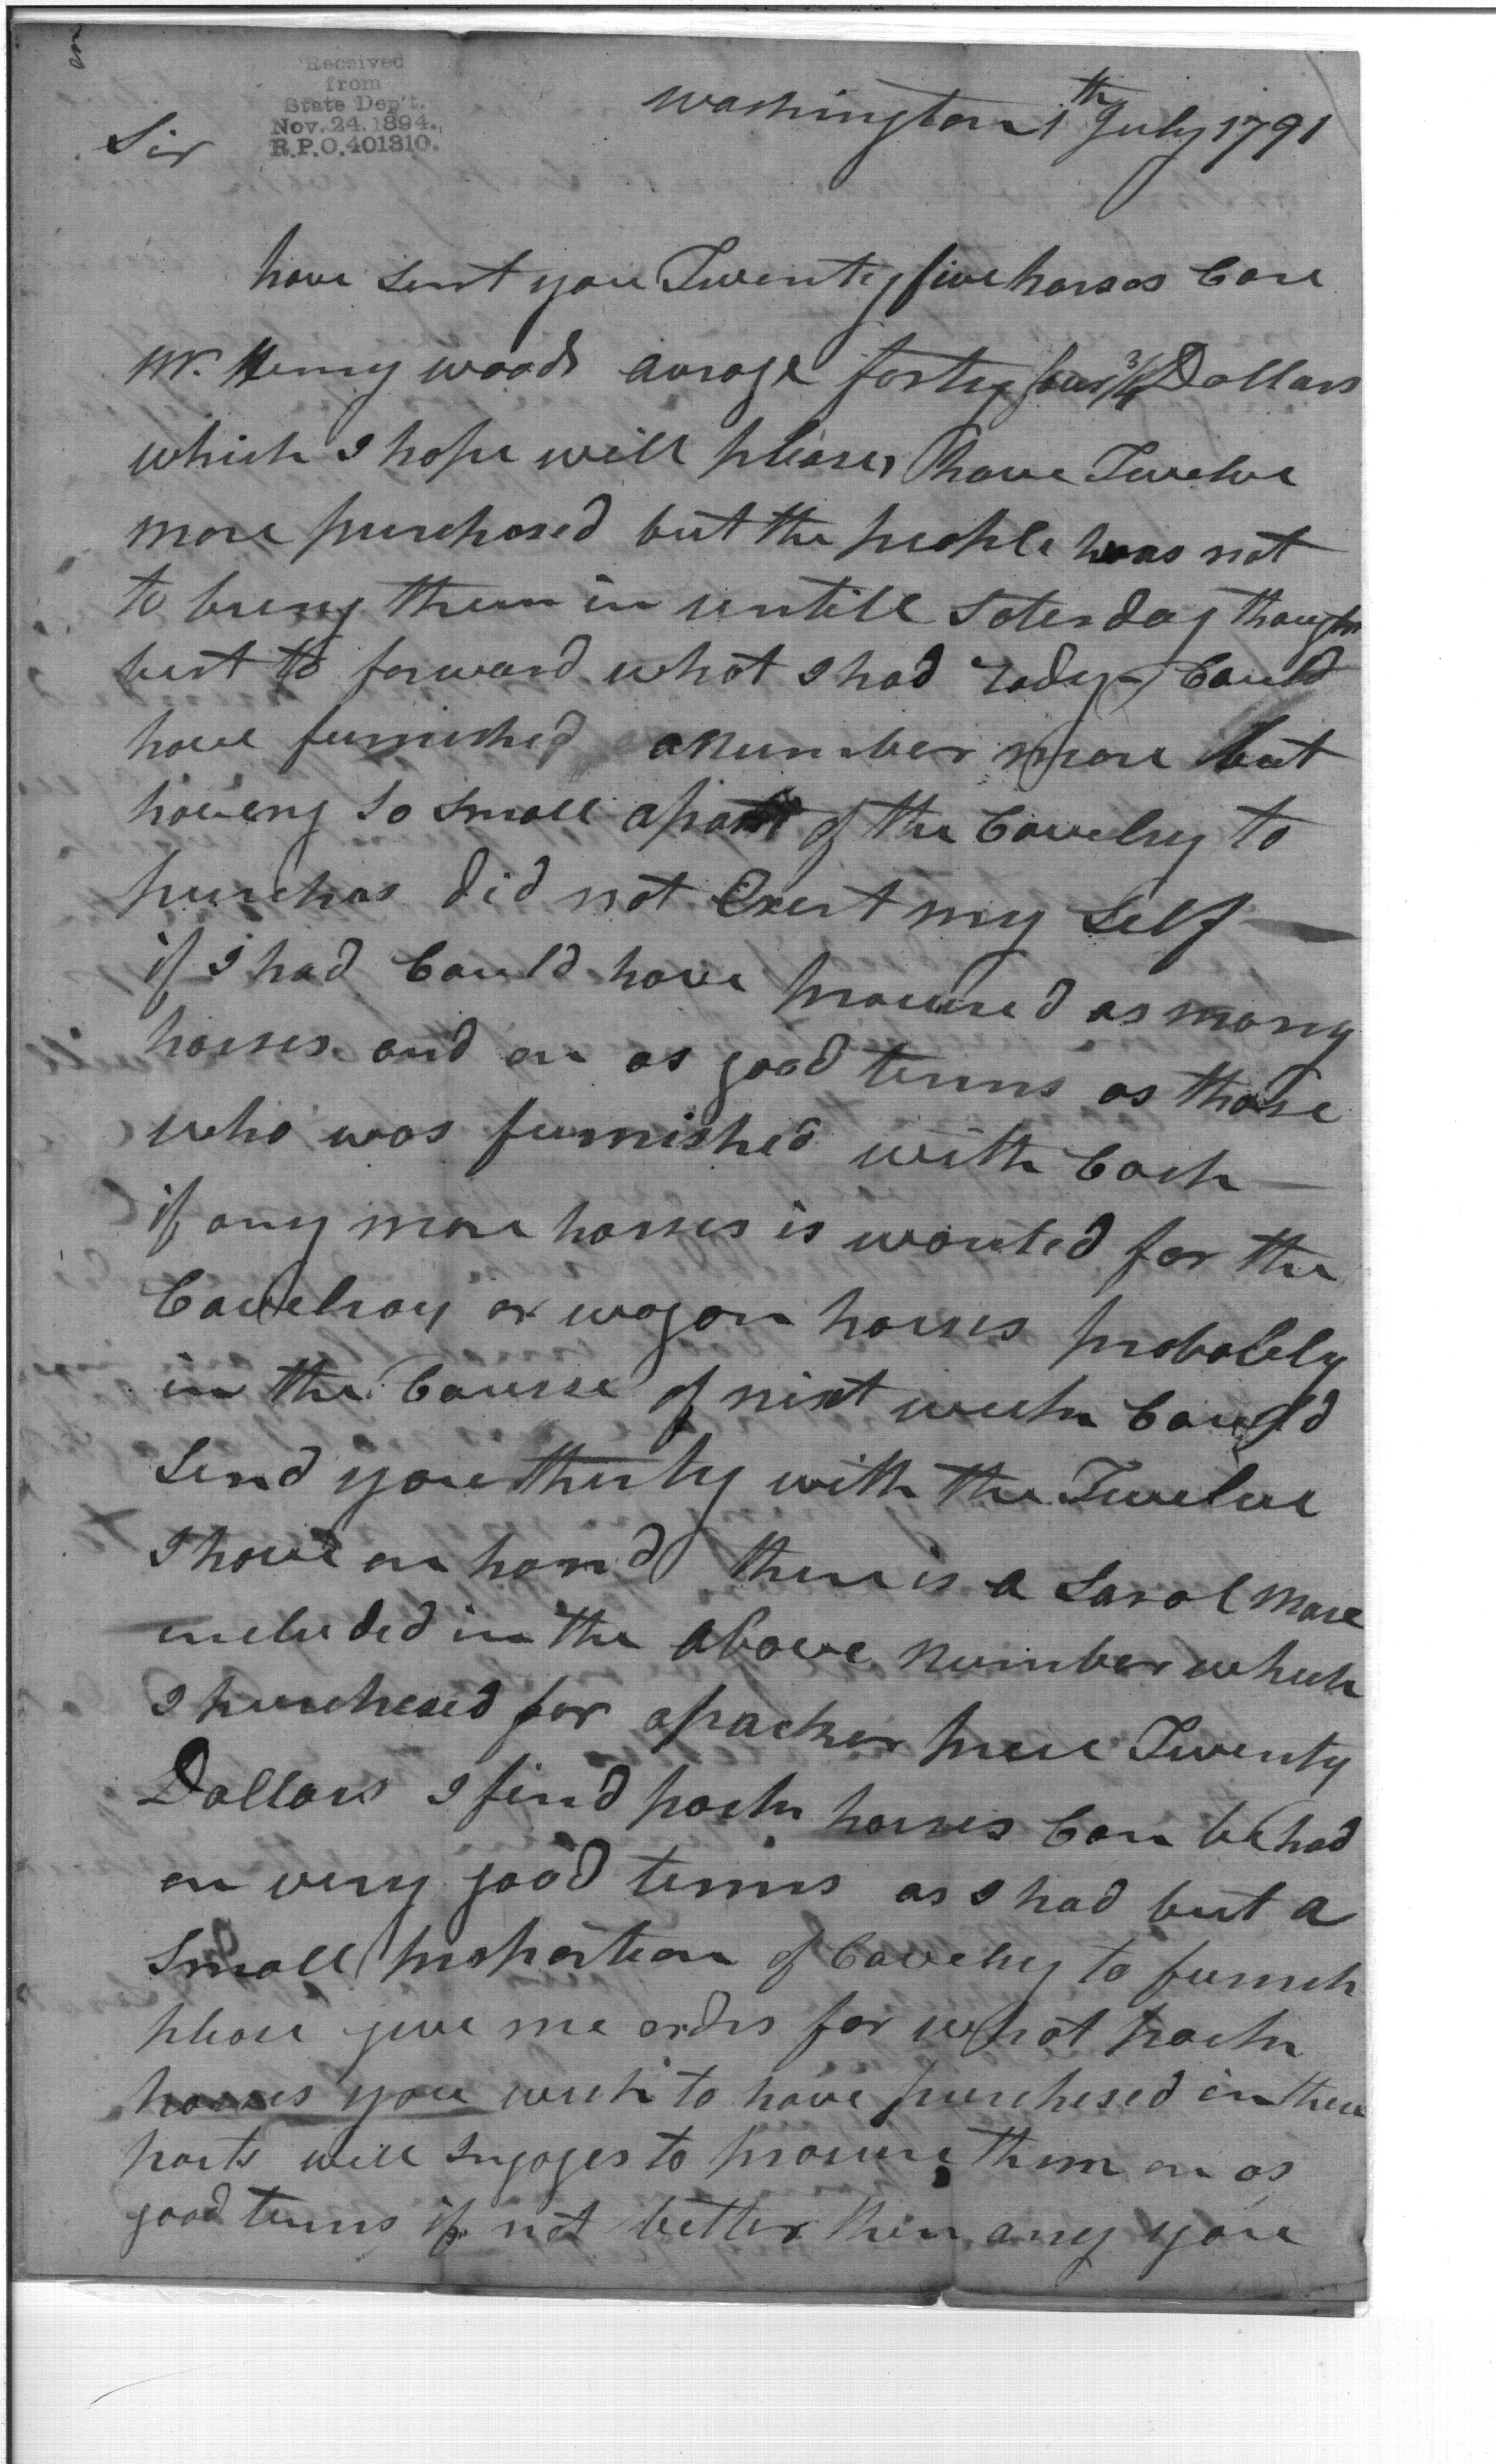 Received
from
State Dep't.
Nov. 24. 1894.
R.P.O. 401310.
Washington 1th July 1791
Sir
have sent you Twenty five horses Care
Mr. Henry woods avrage forty four 3/4 Dollars
which I hope will please, have Twelve
more purchased but the people was not
to bring them in untill Saterday though
best to forward what I had rady Could
have furnished a Number more but
haveing so small a part of the Cavelry to
purchas did not Exert my Self
if I had Could have procured as many
horses and on as good terms as those
who was furnished with Cash
if any more horses is wanted for the
Cavelray or wagon horses probabely
in the Course of next week Could
Send you thirty with the Twelve
I have on hand there is a Sarol Mare
included in the above Number which
I purchesed for a packer price Twenty
Dollars I find pack horses Can be had
on very good terms as I had but a
Small proportion of Cavelry to furnish
please give me ordrs for what pack
horses you wish to have purchesed in these
parts will Ingages to procure them on as
good terms if not better then any you